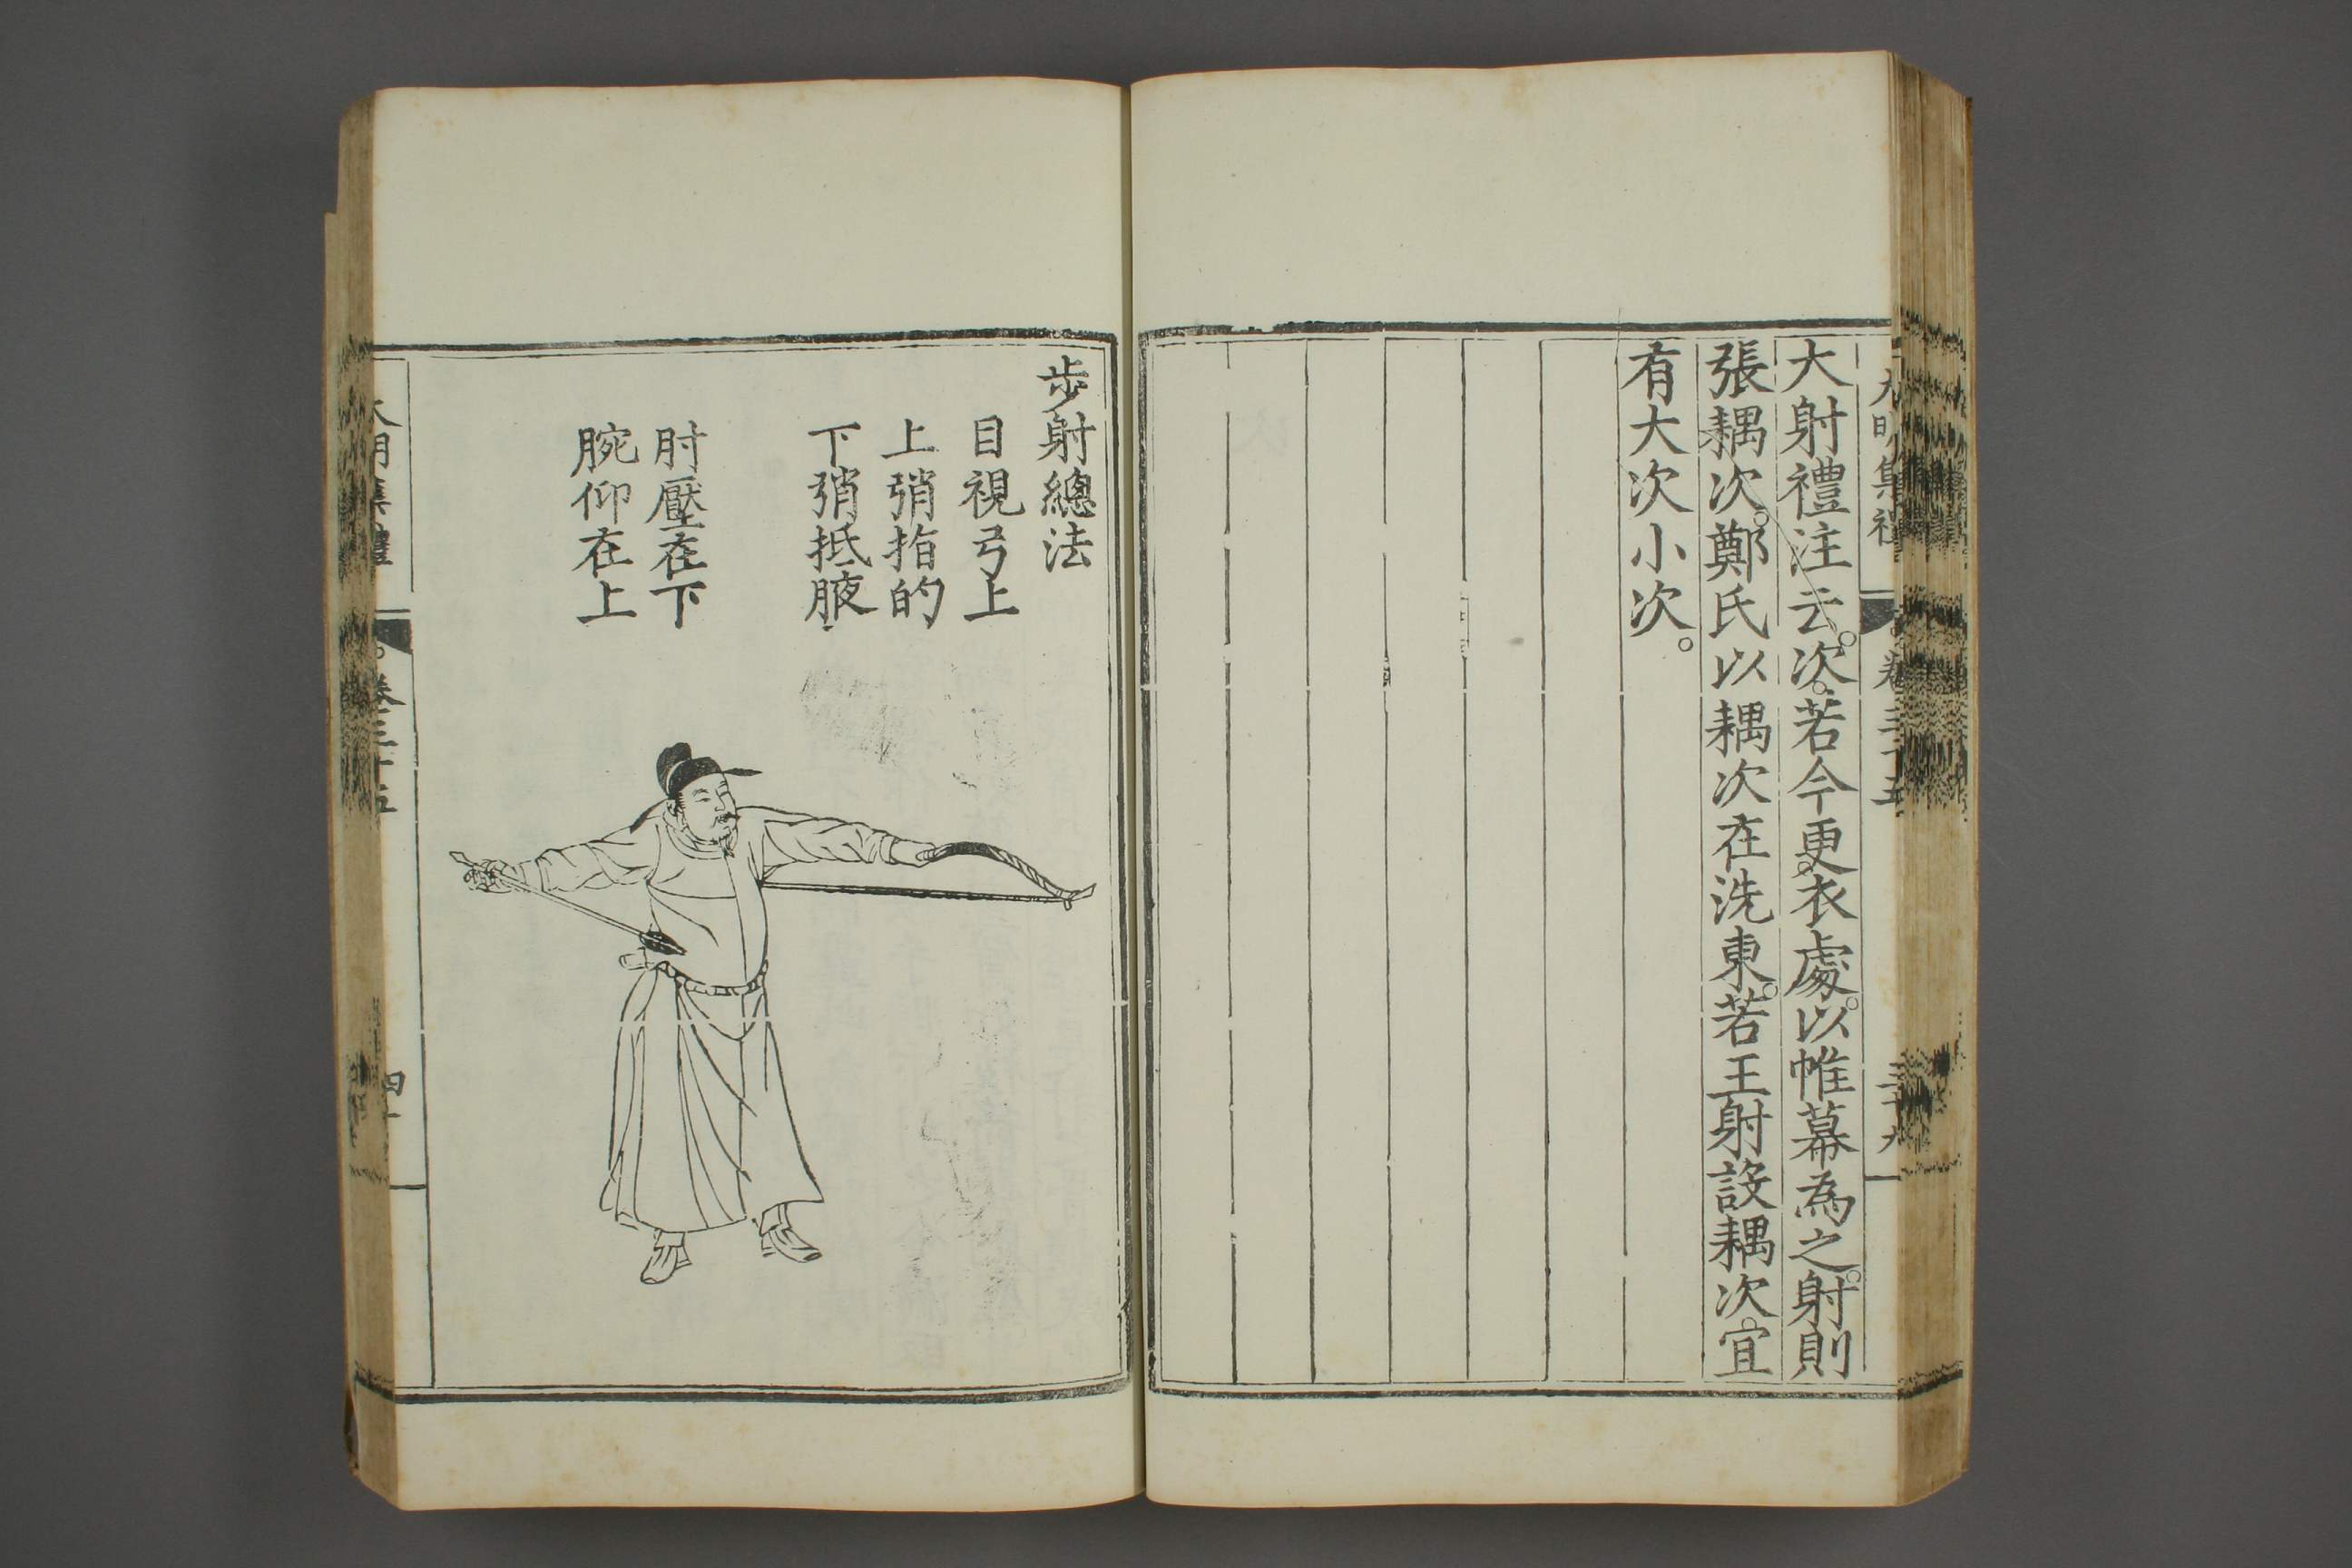 大射禮注云。次。若今更衣處。以帷幕為之。射則
張耦次。鄭氏以耦次在洗東。若王射設耦次。宜
有大次小次。
步射總法
目視弓上
上弰指的
下弰抵腋
肘壓在下
腕仰在上
大明集禮
卷三十五